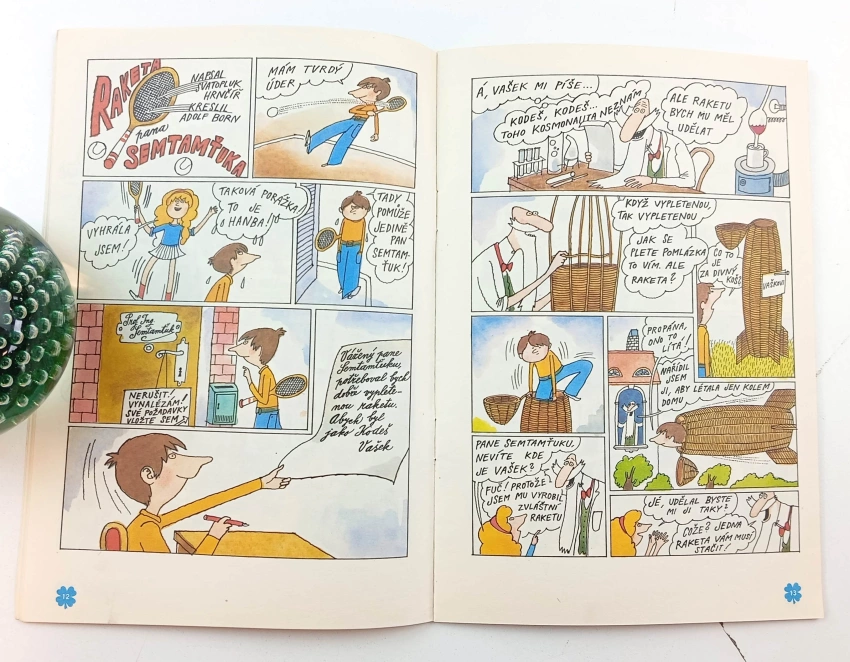 RAKETA
NAPSAL
SVATOPLUK
HRNČÍŘ
KRESLIL
ADOLF BORN
pana
SEMTAMŤUKA
MÁM TVRDÝ
ÚDER
VYHRÁLA
JSEM!
TAKOVÁ PORÁŽKA!
TO JE
HANBA!
TADY
POMŮŽE
JEDINĚ
PAN
SEMTAM-
ŤUK!
Prof. Ing.
Semtamťuk
NERUŠIT!
VYNALÉZÁM!
SVÉ POŽADAVKY
VLOŽTE SEM
Vážený pane
Semtamťuku,
potřeboval bych
dobře vyplete-
nou raketu.
Abych byl
jako Kodeš
Vašek
12
Á, VAŠEK MI PÍŠE...
KODEŠ, KODEŠ...
TOHO KOSMONAUTA NEZNÁM
ALE RAKETU
BYCH MU MĚL
UDĚLAT
KDYŽ VYPLETENOU,
TAK VYPLETENOU
JAK SE
PLETE POMLÁZKA
TO VÍM. ALE
RAKETA?
CO TO
JE
ZA DIVNÝ
KOŠ?
VAŠKOVI
PROPÁNA,
ONO TO
LÍTÁ!
NAŘÍDIL
JSEM
JI, ABY LÉTALA JEN KOLEM
DOMU
PANE SEMTAMŤUKU,
NEVÍTE KDE
JE VAŠEK?
FUČ! PROTOŽE
JSEM MU VYROBIL
ZVLÁŠTNÍ
RAKETU
JÉ, UDĚLAL BYSTE
MI JI TAKY?
COŽE? JEDNA
RAKETA VÁM MUSÍ
STAČIT!
13